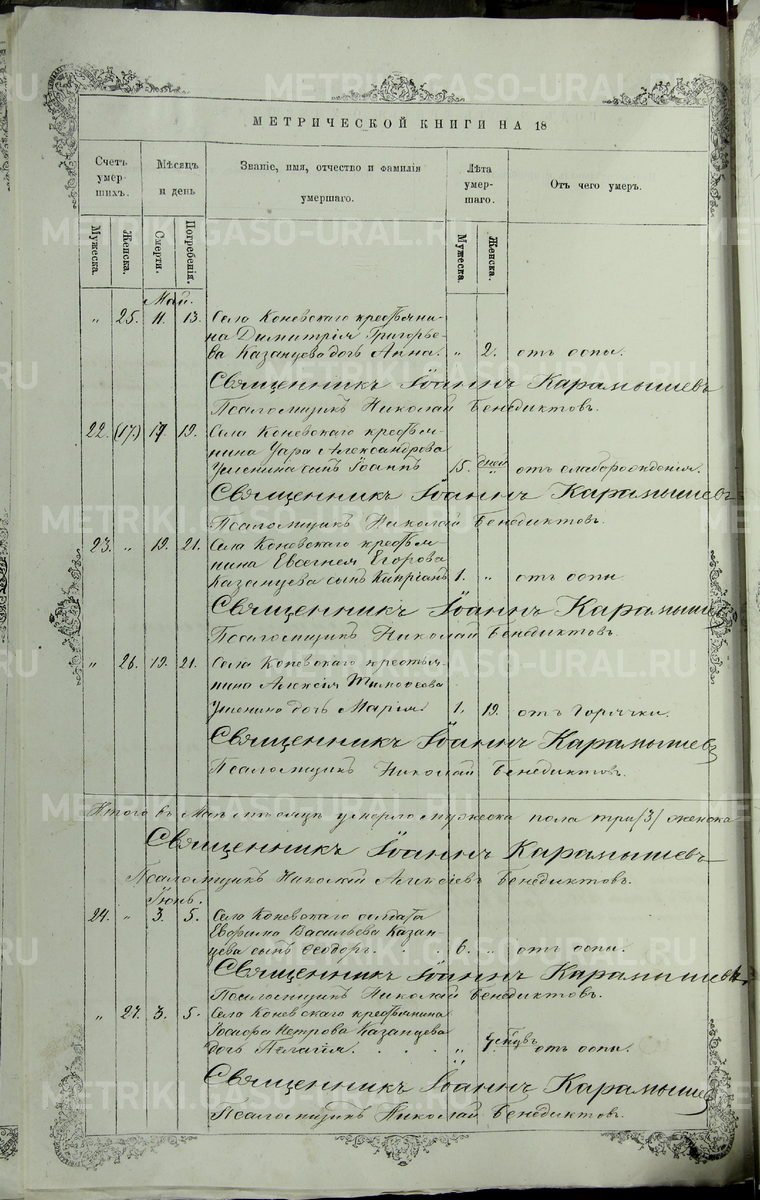 METRIKI.GASO-URAL.RU
МЕТРИЧЕСКОЙ КНИГИ НА 18
Счетъ умер- шихъ. Мѣсяцъ и день Званіе, имя, отчество и фамилія умершаго. Лѣта умер- шаго. Отъ чего умеръ.
Мужеска. Женска. Смерти. Погребенія. Мужеска. Женска.
Май.
" 25. 11. 13. Села Коневскаго крестьяни-
на Димитрія Григорье-
ва Казанцева дочь Анна. " 2. отъ оспы.
Священникъ Іоаннъ Карамышевъ
Псаломщикъ Николай Бенедиктовъ.
22. (17.) 17. 19. Села Коневскаго крестья-
нина Александрова
сынъ Іоаннъ 15. дней отъ слаборожденія.
Священникъ Іоаннъ Карамышевъ
Псаломщикъ Николай Бенедиктовъ.
23. " 19. 21. Села Коневскаго крестья-
нина Евсегнея Егорова
Казанцева сынъ Кипріанъ 1. " отъ оспы
Священникъ Іоаннъ Карамышевъ
Псаломщикъ Николай Бенедиктовъ.
" 26. 19. 21. Села Коневскаго крестья-
нина Алексія Тимоѳеева
дочь Марія. 1. 19. отъ горячки.
Священникъ Іоаннъ Карамышевъ
Псаломщикъ Николай Бенедиктовъ.
Итого въ Маѣ мѣсяцѣ умерло мужеска пола три /3/ женска
Священникъ Іоаннъ Карамышевъ
Псаломщикъ Николай Алексіевъ Бенедиктовъ.
Іюнь.
24. " 3. 5. Села Коневскаго солдата
Евфима Васильева Казан-
цева сынъ Ѳеодоръ. 6. " отъ оспы.
Священникъ Іоаннъ Карамышевъ.
Псаломщикъ Николай Бенедиктовъ.
" 27. 3. 5. Села Коневскаго крестьянина
Іосифа Петрова Казанцева
дочь Пелагія. " отъ оспы.
Священникъ Іоаннъ Карамышевъ
Псаломщикъ Николай Бенедиктовъ.